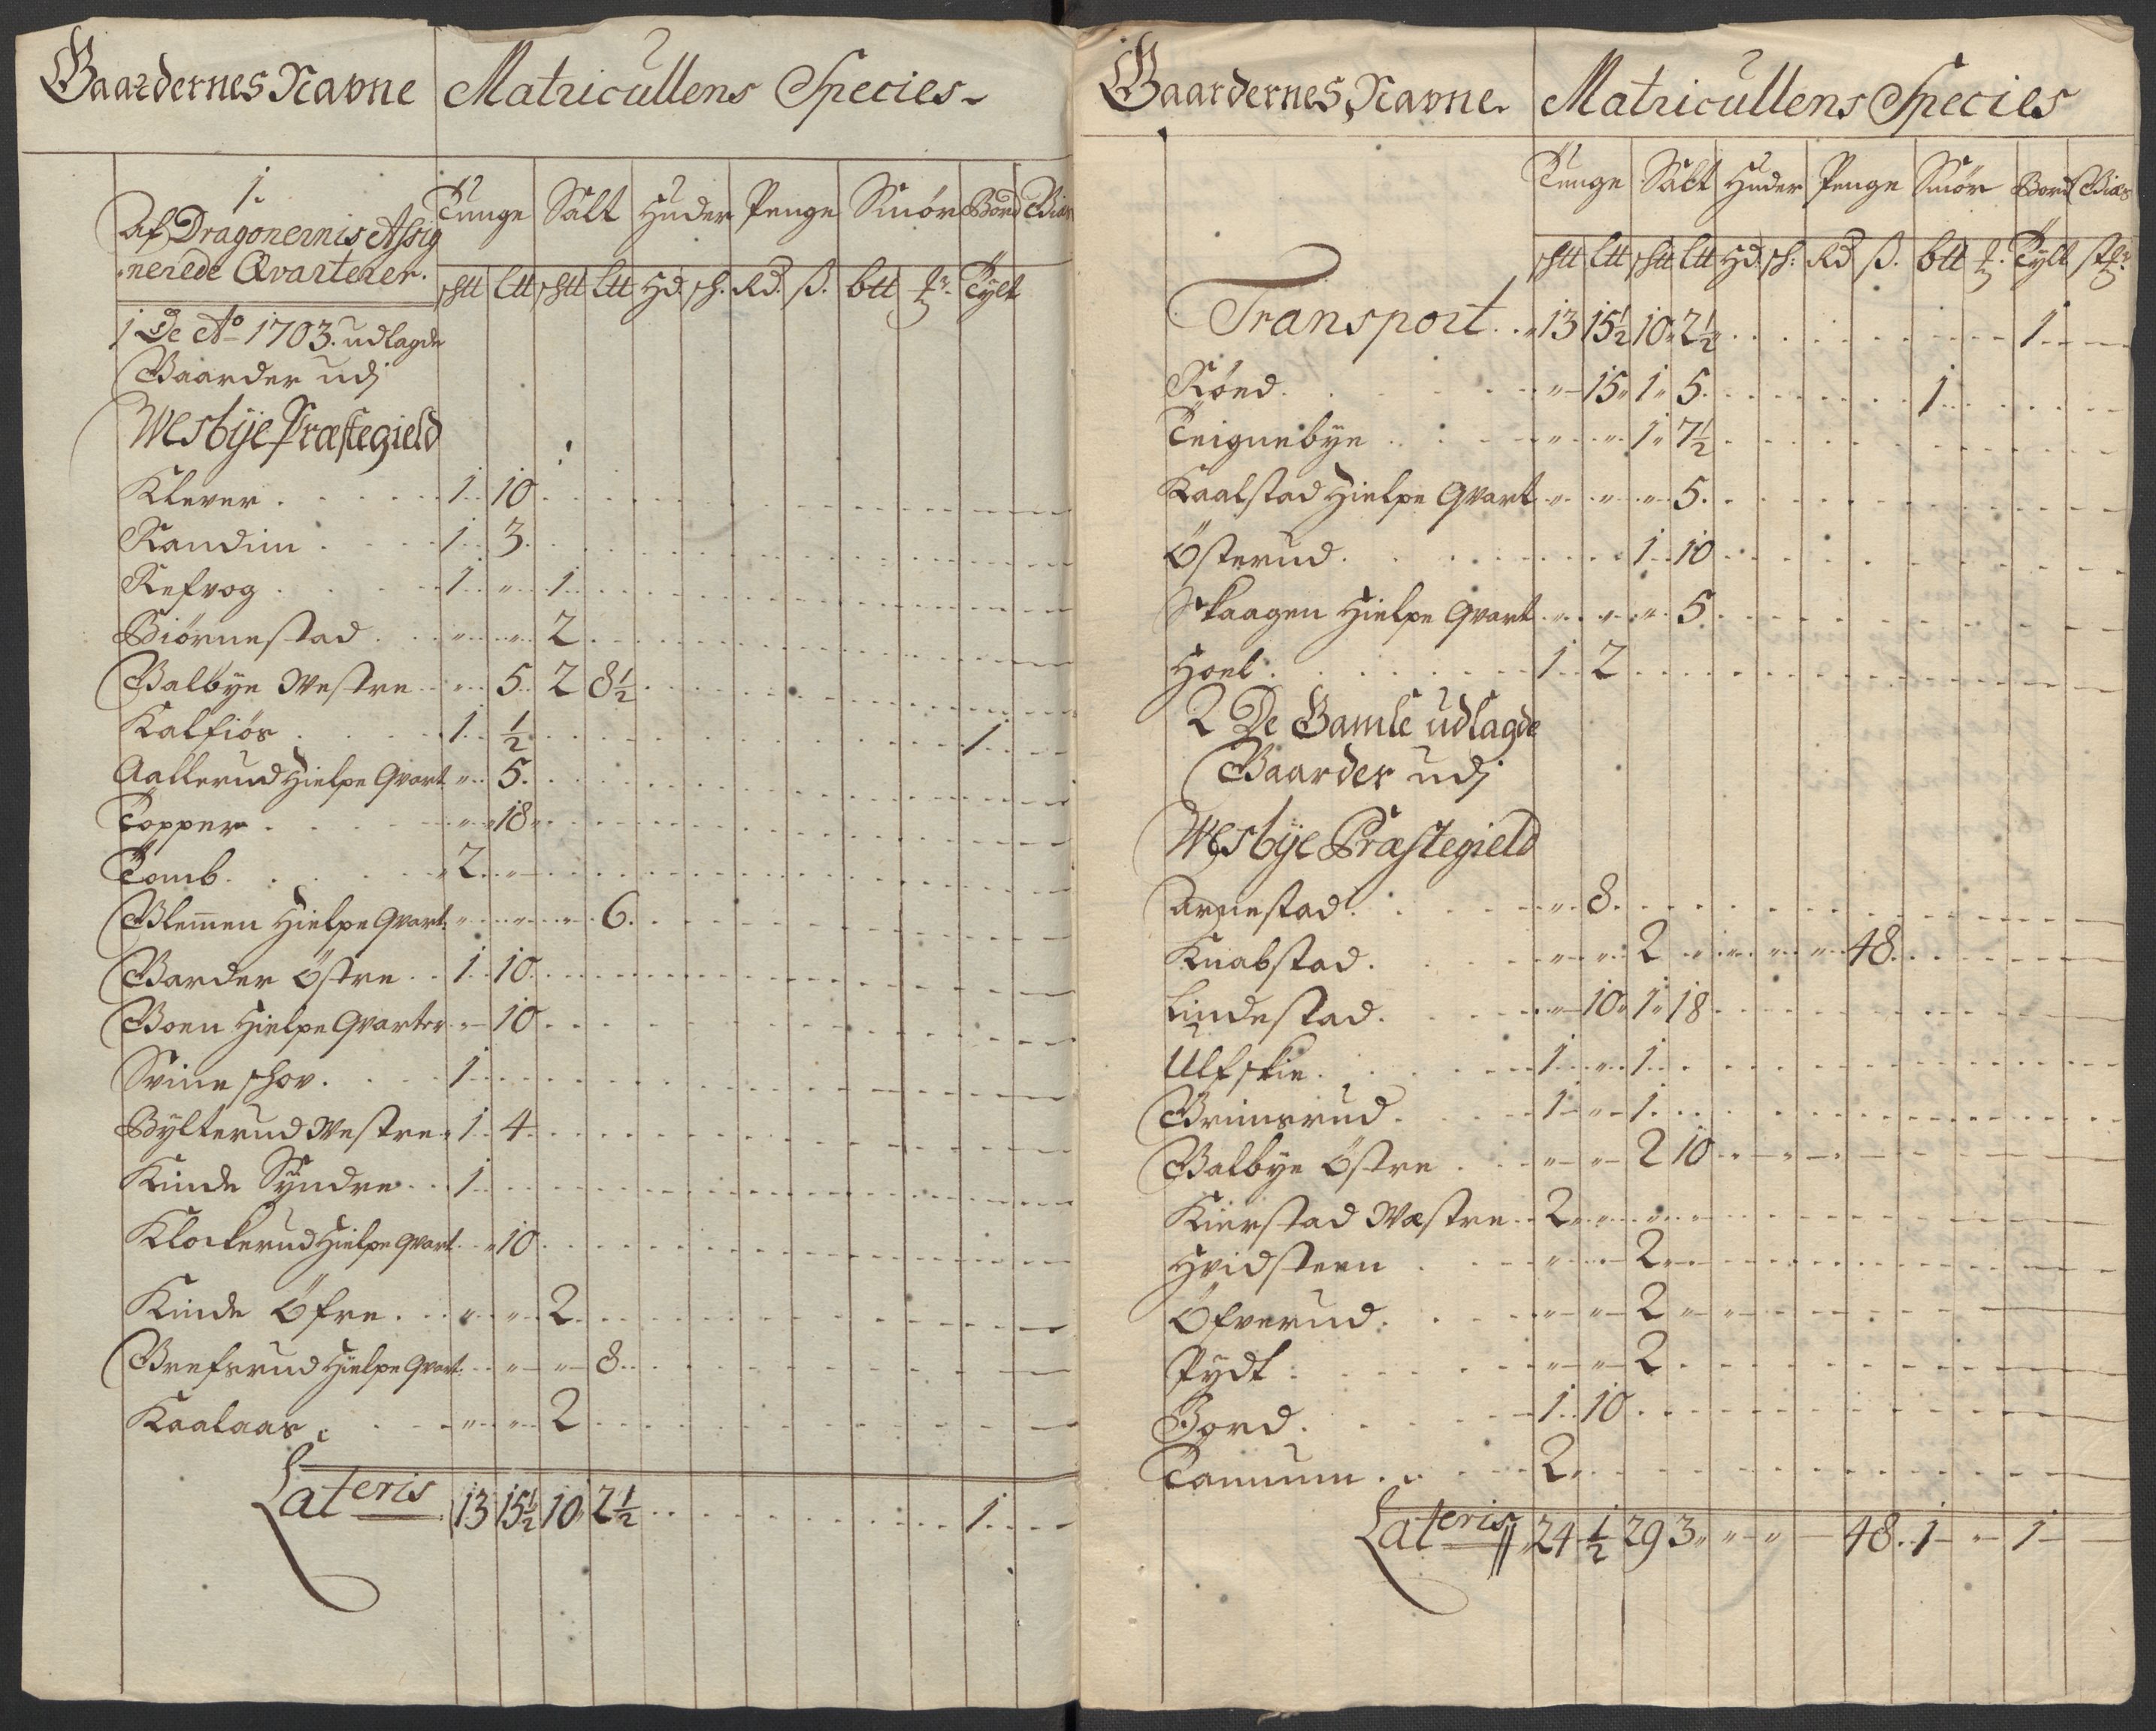 Gaardernes Navne Matricullens Species
1.
Af Dragonernis Assig
nerede Qvarterer.
Tunge Salt Huder Penge Smör Bord
sktt ltt sktt ltt Hd. sk. Rd. ß. btt Tylt
1 De Ao 1703. udlagde
Gaarder udj
Wesbÿe Præstegield
Klever 1 10
Randim 1 3
Refvog 1 " 1
Biörnestad " " 2
Galbye Westre " 5 2 8½
Kalfiös 1 ½ 1
Aallerud Hielpe Qvart " 5
Topper " 18
Tomb 2 "
Glemmen Hielpe Qvart: " " " 6
Garder Östre 1 10
Boen Hielpe Qvarter " 10
Svine skov 1
Bÿlterud Westre 1 4
Kinde Sÿndre 1
Klockerud Hielpe Qvart " 10
Kinde Öfre " " 2
Grefsrud Hielpe Qvart: " " 8
Kaalaas " " 2
Lateris 13 15½ 10 2½ 1
Gaardernes Navne Matricullens Species
Tunge Salt Huder Penge Smör Bord
sktt ltt sktt ltt Hd. sk: Rd ß. btt Tylt
Transport 13 15½ 10 2½ 1
Röed " 15 1 5 1
Teignebye " " 1 7½
Kaalstad Hielpe Qvart " " " 5
Österud 1 10
Skaagen Hielpe Qvart " " " 5
Hoel 1 2
2 De Gamle udlagde
Gaarder udj
Wesbÿe Præstegield
Arnestad " 8
Knabstad " " 2 " " " " 48
Lindestad " 10 1 18
Ulfskie 1 " 1
Grimsrud 1 " 1
Galbye Östre " " 2 10
Kierstad Wæstre 2 " " "
Hvidsteen " " 2
Öfverud " " 2 " "
Pydt " " 2
Gord 1 10
Tannum 2
Lateris 24 ½ 29 3 " " " 48 1 " 1